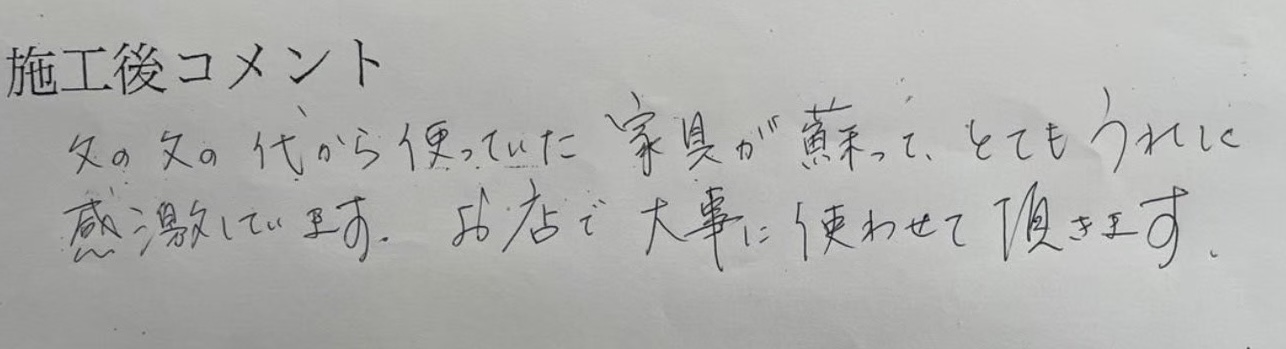 施工後コメント
父の父の代から使っていた家具が蘇って、とてもうれしく
感激しています。お店で大事に使わせて頂きます。